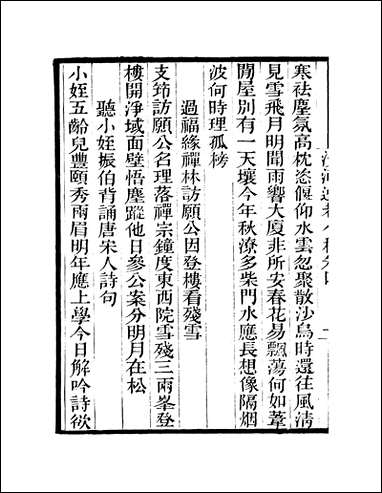 寒祛塵氛高枕恣偃仰水雲忽聚散沙鳥時還往風淸
見雪飛月明聞雨響大廈非所安春花易飄蕩何如葦
間屋別有一天壤今年秋潦多柴門水應長想像隔烟
波何時理孤榜
過福緣禪林訪願公因登樓看殘雪
支筇訪願公名理落禪宗鐘度東西院雪殘三兩峯登
樓開淨域面壁悟塵蹤他日參公案分明月在松
聽小姪振伯背誦唐宋人詩句
小姪五齡兒豐頤秀兩眉明年應上學今日解吟詩欲